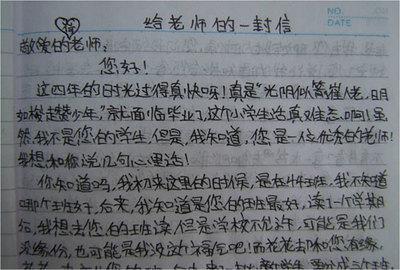 NO.
DATE
给老师的一封信
敬爱的老师：
您好！
这四年的时光过得真快呀！真是“光阴似箭催人老，日月
如梭赶少年。”就面临毕业了，这个小学生活真难忘啊！虽
然，我不是您的学生，但是，我知道，您是一位优秀的老师！
我想和你说几句心里话！
你知道吗，我初来这里的时候，是在4班，我不知道
哪个班好，后来，我知道是您的班最好，读了一个学期
后，我想去您的班读，但是学校不允许，可能是我们
没缘份，也可能是我没这个福气吧！而老老却和您有缘，